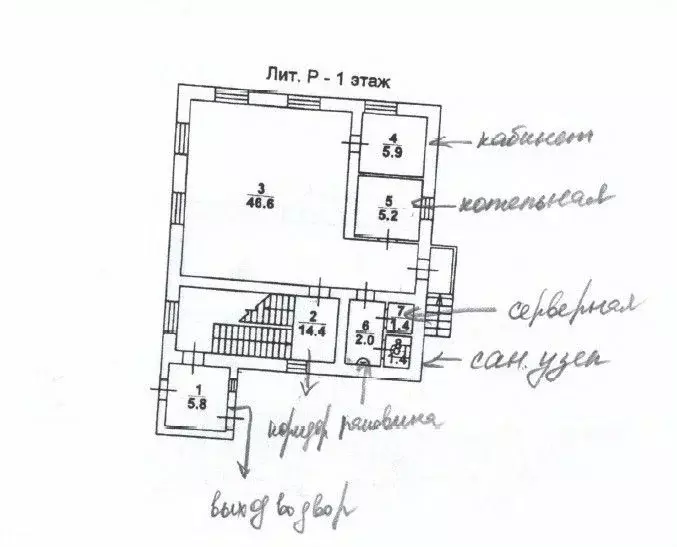 Лит. Р - 1 этаж
4
5.9
кабинет
3
46.6
5
5.2
котельная
7
1.4
серверная
2
14.4
6
2.0
8
1.4
сан. узел
1
5.8
коридор раковина
выход во двор